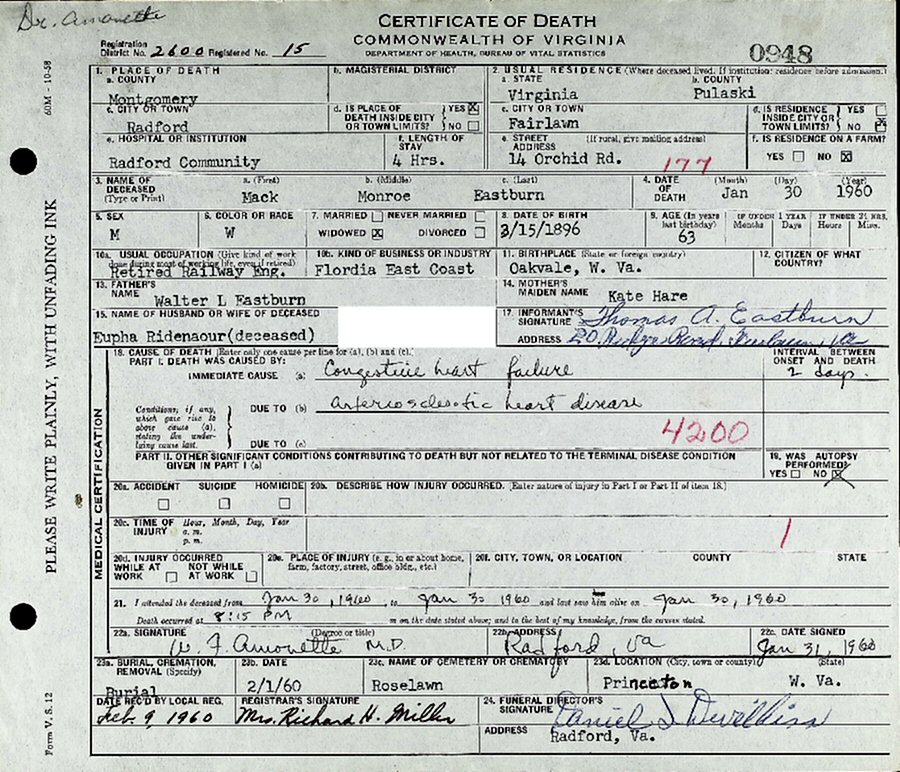 Dr. Amonette
CERTIFICATE OF DEATH
COMMONWEALTH OF VIRGINIA
DEPARTMENT OF HEALTH, BUREAU OF VITAL STATISTICS
Registration District No. 2600 Registered No. 15
0948
60M - 10-58
1. PLACE OF DEATH
a. COUNTY
Montgomery
b. MAGISTERIAL DISTRICT
2. USUAL RESIDENCE (Where deceased lived. If institution: residence before admission.)
a. STATE
Virginia
b. COUNTY
Pulaski
c. CITY OR TOWN
Radford
d. IS PLACE OF DEATH INSIDE CITY OR TOWN LIMITS? YES NO
c. CITY OR TOWN
Fairlawn
d. IS RESIDENCE INSIDE CITY OR TOWN LIMITS? YES NO
e. HOSPITAL OR INSTITUTION
Radford Community
f. LENGTH OF STAY
4 Hrs.
e. STREET ADDRESS (If rural, give mailing address)
14 Orchid Rd.
177
f. IS RESIDENCE ON A FARM?
YES NO
3. NAME OF DECEASED (Type or Print)
a. (First) b. (Middle) c. (Last)
Mack Monroe Eastburn
4. DATE OF DEATH (Month) (Day) (Year)
Jan 30 1960
5. SEX
M
6. COLOR OR RACE
W
7. MARRIED NEVER MARRIED
WIDOWED DIVORCED
8. DATE OF BIRTH
3/15/1896
9. AGE (In years last birthday)
63
IF UNDER 1 YEAR
Months Days
IF UNDER 24 HRS.
Hours Min.
10a. USUAL OCCUPATION (Give kind of work done during most of working life, even if retired)
Retired Railway Eng.
10b. KIND OF BUSINESS OR INDUSTRY
Flordia East Coast
11. BIRTHPLACE (State or foreign country)
Oakvale, W. Va.
12. CITIZEN OF WHAT COUNTRY?
13. FATHER'S NAME
Walter L Eastburn
14. MOTHER'S MAIDEN NAME
Kate Hare
15. NAME OF HUSBAND OR WIFE OF DECEASED
Eupha Ridenaour(deceased)
17. INFORMANT'S SIGNATURE Thomas A. Eastburn
ADDRESS 20 Ridge Road, Fairlawn, Va
18. CAUSE OF DEATH [Enter only one cause per line for (a), (b) and (c).]
PART I. DEATH WAS CAUSED BY:
IMMEDIATE CAUSE (a) Congestive heart failure
INTERVAL BETWEEN ONSET AND DEATH
2 days.
Conditions, if any, which gave rise to above cause (a), stating the underlying cause last.
DUE TO (b) arteriosclerotic heart disease
DUE TO (c)
4200
PART II. OTHER SIGNIFICANT CONDITIONS CONTRIBUTING TO DEATH BUT NOT RELATED TO THE TERMINAL DISEASE CONDITION GIVEN IN PART I (a)
19. WAS AUTOPSY PERFORMED?
YES NO
20a. ACCIDENT SUICIDE HOMICIDE
20b. DESCRIBE HOW INJURY OCCURRED. (Enter nature of injury in Part I or Part II of item 18.)
20c. TIME OF INJURY Hour, Month, Day, Year
a. m.
p. m.
1
20d. INJURY OCCURRED
WHILE AT WORK NOT WHILE AT WORK
20e. PLACE OF INJURY (e. g., in or about home, farm, factory, street, office bldg., etc.)
20f. CITY, TOWN, OR LOCATION COUNTY STATE
21. I attended the deceased from Jan 30, 1960, to Jan 30 1960 and last saw him alive on Jan 30, 1960
Death occurred at 8:15 PM m on the date stated above; and to the best of my knowledge, from the causes stated.
22a. SIGNATURE (Degree or title)
W. F. Amonette M.D.
22b. ADDRESS
Radford, Va
22c. DATE SIGNED
Jan 31, 1960
23a. BURIAL, CREMATION, REMOVAL (Specify)
Burial
23b. DATE
2/1/60
23c. NAME OF CEMETERY OR CREMATORY
Roselawn
23d. LOCATION (City, town or county) (State)
Princeton W. Va.
DATE REC'D BY LOCAL REG.
Feb. 9, 1960
REGISTRAR'S SIGNATURE
Mrs. Richard H. Miller
24. FUNERAL DIRECTOR'S SIGNATURE Daniel J. Devilbiss
ADDRESS Radford, Va.
PLEASE WRITE PLAINLY, WITH UNFADING INK
MEDICAL CERTIFICATION
Form V. S. 12